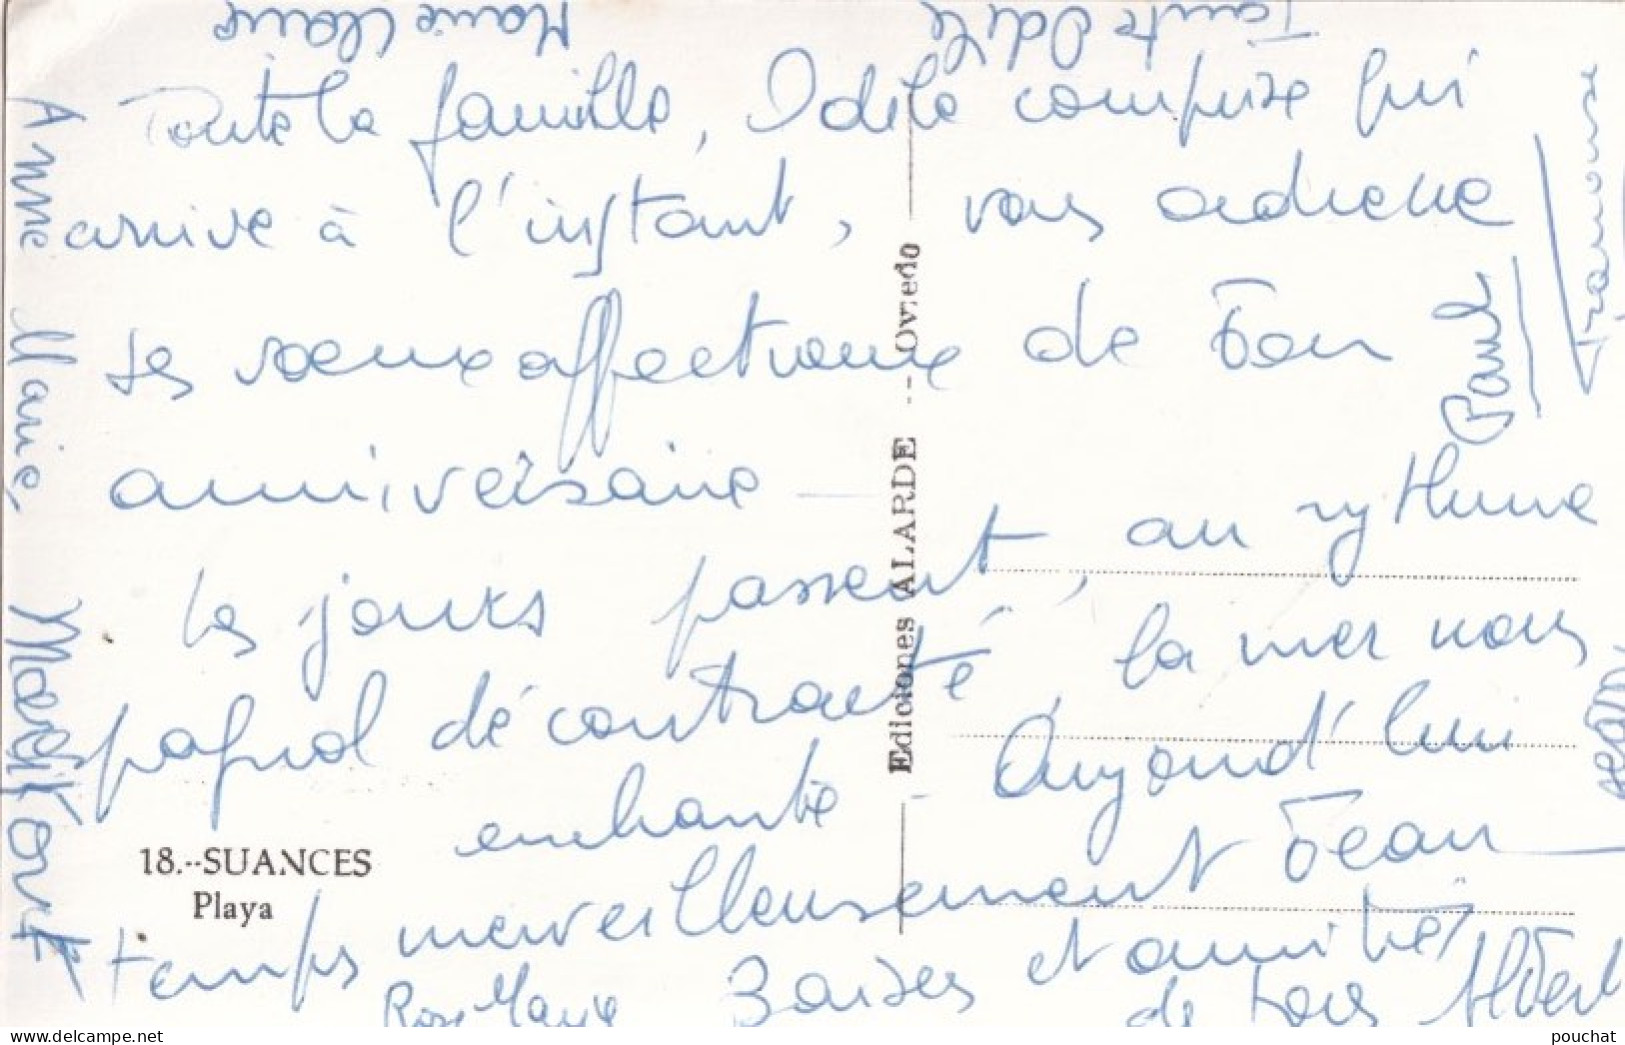 Marie Claire
Tante Odile
Toute la famille, Odile comprise qui
arrive à l'instant, vous adresse
ses vœux affectueux de bon
anniversaire
Les jours passent, au rythme
espagnol décontracté, la mer nous
enchante. Aujourd'hui
temps merveilleusement beau
Baises et amitiés
de tous Albert
Rose Marie
Anne Marie
Paul
Françoise
Jean
Ediciones ALARDE -- Oviedo
18.--SUANCES
Playa
pouchat